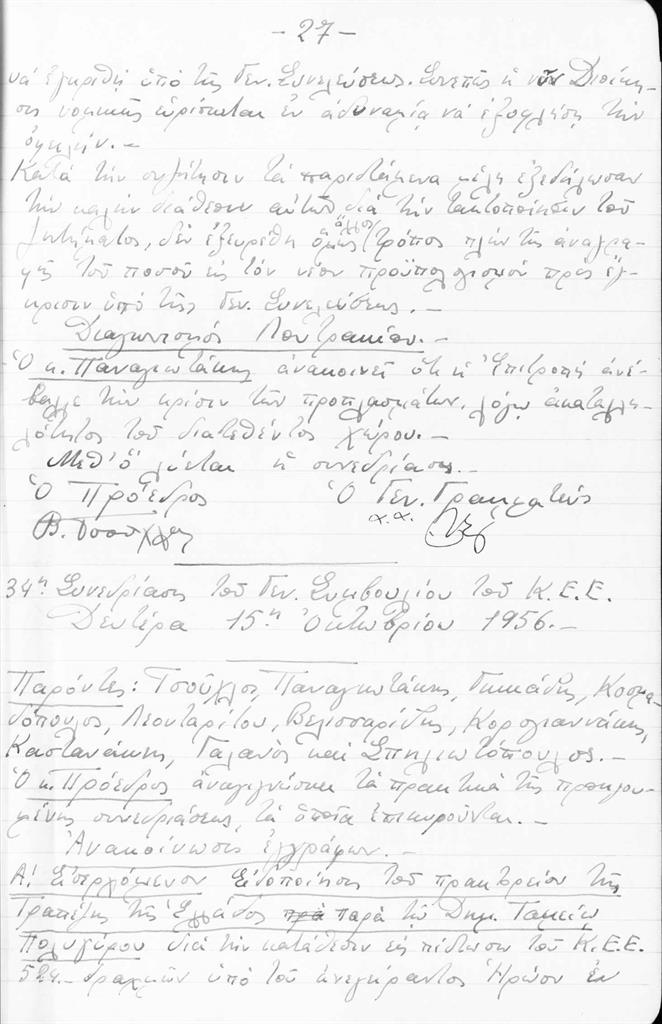 - 27 -
νά ἐγκριθῇ ὑπό τῆς Γεν. Συνελεύσεως. Συνεπῶς ἡ νῦν Διοίκη-
σις νομικῶς εὑρίσκεται ἐν ἀδυναμίᾳ νά ἐξοφλήσῃ τήν
ὀφειλήν. -
Κατά τήν συζήτησιν τά παριστάμενα μέλη ἐξεδήλωσαν
τήν καλήν διάθεσιν αὐτῶν διά τήν τακτοποίησιν τοῦ
ζητήματος, δέν ἐξευρέθη ὅμως ἄλλος τρόπος πλήν τῆς ἀναγρα-
φῆς τοῦ ποσοῦ εἰς τόν νέον προϋπολογισμόν πρός ἔγ-
κρισιν ὑπό τῆς Γεν. Συνελεύσεως. -
Διαγωνισμός Λουτρακίου. -
Ὁ κ. Παναγιωτάκης ἀνακοινεῖ ὅτι ἡ Ἐπιτροπή ἀνέ-
βαλλε τήν κρίσιν τῶν προπλασμάτων, λόγῳ ἀκαταλλη-
λότητος τοῦ διατεθέντος χώρου. -
Μεθ' ὅ λύεται ἡ συνεδρίασις. -
Ὁ Πρόεδρος Ὁ Γεν. Γραμματεύς
α.α.
Β. Τσούχλος
34η Συνεδρίασις τοῦ Γεν. Συμβουλίου τοῦ Κ.Ε.Ε.
Δευτέρα 15η Ὀκτωβρίου 1956. -
Παρόντες: Τσοῦχλος, Παναγιωτάκης, Γηκάδης, Κοσμα-
δόπουλος, Λεονταρίτου, Βελισσαρίδης, Κορογιαννάκης,
Καστανάκης, Γαλανός καί Σπηλιωτόπουλος. -
Ὁ κ. Πρόεδρος ἀναγιγνώσκει τά πρακτικά τῆς προηγου-
μένης συνεδριάσεως, τά ὁποῖα ἐπικυροῦνται. -
Ἀνακοίνωσις ἐγγράφων. -
Α! Εἰσερχόμενον Εἰδοποίησις τοῦ πρακτορείου τῆς
Τραπέζης τῆς Ἑλλάδος παρά τῷ Δημ. Ταμείῳ
Πολυγύρου διά τήν κατάθεσιν εἰς πίστωσιν τοῦ Κ.Ε.Ε.
524. - δραχμῶν ὑπό τοῦ ἀνεγείραντος Ἡρῶον ἐν